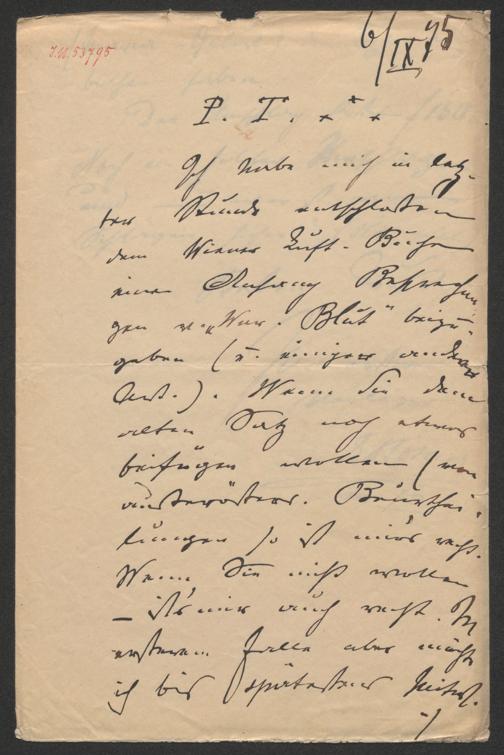 6/IX 95
I.N. 53795
P. T. + * +
Ich habe mich in letz-
ter Stunde entschlossen
dem Wiener Luft-Buche
einen Anhang Besprechun-
gen v. „Wien. Blut" beizu-
geben (u. einiger anderer
). Wenn Sie dem
alten Satz noch etwas
beifügen wollen (von
ausserösterr. Beurthei-
lungen so ist mir's recht.
Wenn Sie nicht wollen
– ist's mir auch recht. Im
ersteren Falle aber möchte
ich bis spätestens